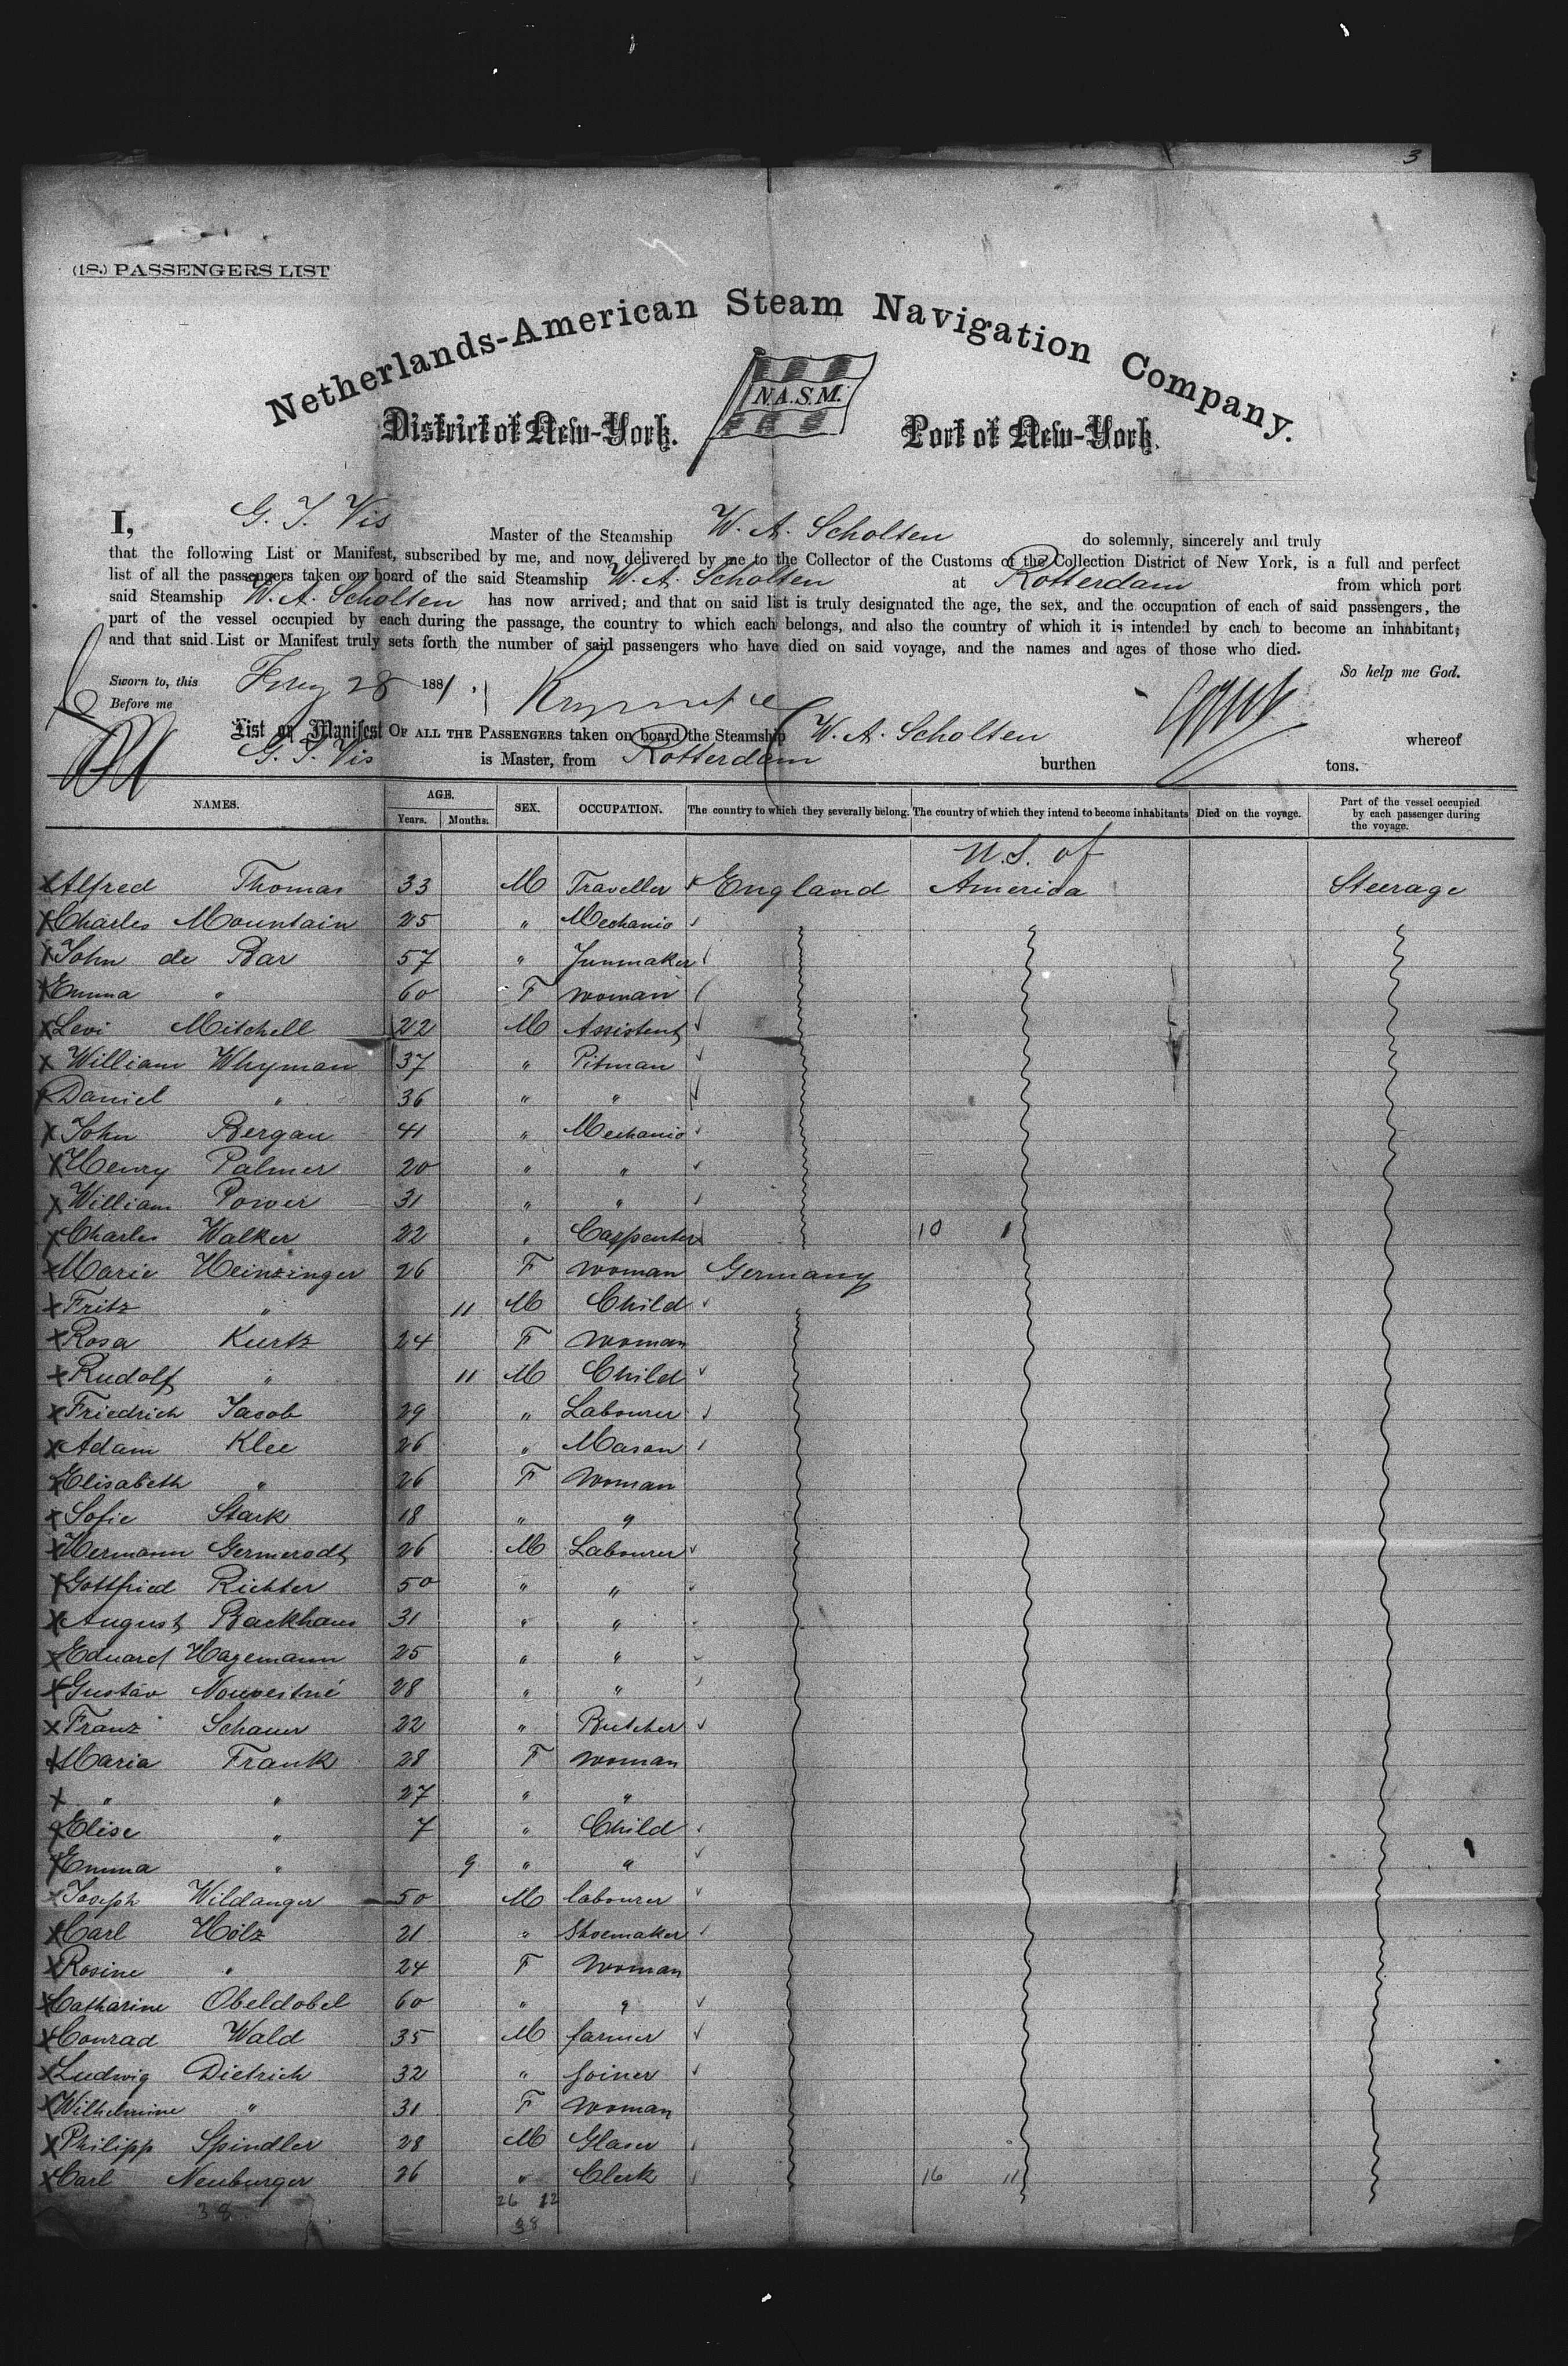 3
(18.) PASSENGERS LIST
Netherlands-American Steam Navigation Company.
N.A.S.M.
District of New-York. Port of New-York.
I, G. J. Vis Master of the Steamship W. A. Scholten do solemnly, sincerely and truly
that the following List or Manifest, subscribed by me, and now delivered by me to the Collector of the Customs of the Collection District of New York, is a full and perfect
list of all the passengers taken on board of the said Steamship W. A. Scholten at Rotterdam from which port
said Steamship W. A. Scholten has now arrived; and that on said list is truly designated the age, the sex, and the occupation of each of said passengers, the
part of the vessel occupied by each during the passage, the country to which each belongs, and also the country of which it is intended by each to become an inhabitant;
and that said List or Manifest truly sets forth the number of said passengers who have died on said voyage, and the names and ages of those who died.
So help me God.
Sworn to, this 28 1881
Before me
List or Manifest OF ALL THE PASSENGERS taken on board the Steamship W. A. Scholten whereof
G. J. Vis is Master, from Rotterdam burthen tons.
NAMES. AGE. Years. Months. SEX. OCCUPATION. The country to which they severally belong. The country of which they intend to become inhabitants Died on the voyage. Part of the vessel occupied by each passenger during the voyage.
U.S. of
x Alfred Thomas 33 M Traveller England America Steerage
x Charles Mountain 25 " Mechanic
x John de Bar 57 " Junmaker
x Emma " 60 F woman
x Levi Mitchell 22 M Assistent
x William Whyman 37 " Pitman
x Daniel " 36 " "
x John Bergan 41 " Mechanic
x Henry Palmer 20 " "
x William Power 31 " "
x Charles Walker 22 " Carpenter 10 1
x Marie Heinzinger 26 F woman Germany
x Fritz " 11 M Child
x Rosa Kurtz 24 F woman
x Rudolf " 11 M Child
x Friedrich Jacob 29 " Labourer
x Adam Klee 26 " Mason
x Elisabeth " 26 F Woman
x Sofie Stark 18 " "
x Hermann Germerodt 26 M Labourer
x Gottfried Richter 50 " "
x August Backhaus 31 " "
x Eduard Hagemann 25 " "
x Gustav 28 " "
x Franz Schauer 22 " Butcher
x Maria Frank 28 F woman
x " " 27 " "
x Elise " 7 " Child
x Emma " 9 " "
x Joseph Wildanger 50 M labourer
x Carl Holz 21 " Shoemaker
x Rosine " 24 F Woman
x Catharine Obeldobel 60 " "
x Conrad Wald 35 M farmer
x Ludwig Dietrich 32 " joiner
x Wilhelmine " 31 F Woman
x Philipp Spindler 28 M Glaser
x Carl Neuburger 26 " Clerk 16 11
38 26 12
38